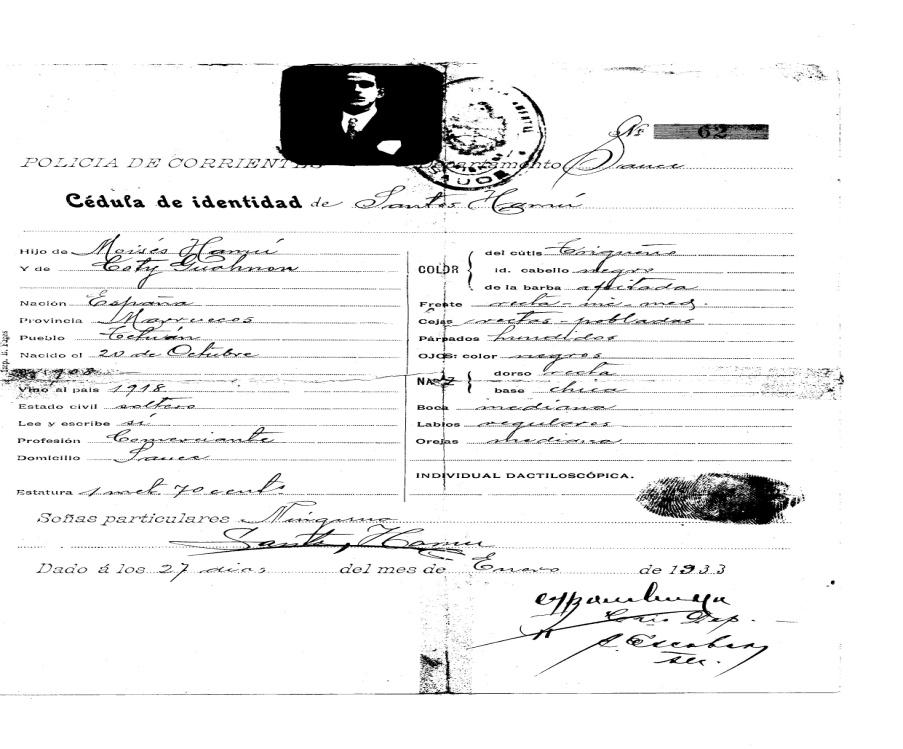 Nº 62
POLICIA DE CORRIENTES Departamento Sauce
Cédula de identidad de Santos Hamú
Hijo de Moisés Hamú
Y de Coty
Nación España
Provincia Marruecos
Pueblo Tetuán
Nacido el 20 de Octubre
908
Vino al pais 1918
Estado civil soltero
Lee y escribe sí
Profesión Comerciante
Domicilio Sauce
Estatura 1 met. 70 cent.
COLOR
del cútis Trigueño
id. cabello negro
de la barba afeitada
Frente recta - inc - med.
Cejas rectas - pobladas
Párpados hundidos
OJOS: color negros
NARIZ
dorso recta
base chica
Boca mediana
Labios regulares
Orejas mediana
INDIVIDUAL DACTILOSCÓPICA.
Señas particulares Ninguna
Santos Hamu
Dado á los 27 dias del mes de Enero de 1933
Dep.
Escobar
sec.
Imp. E. Fages